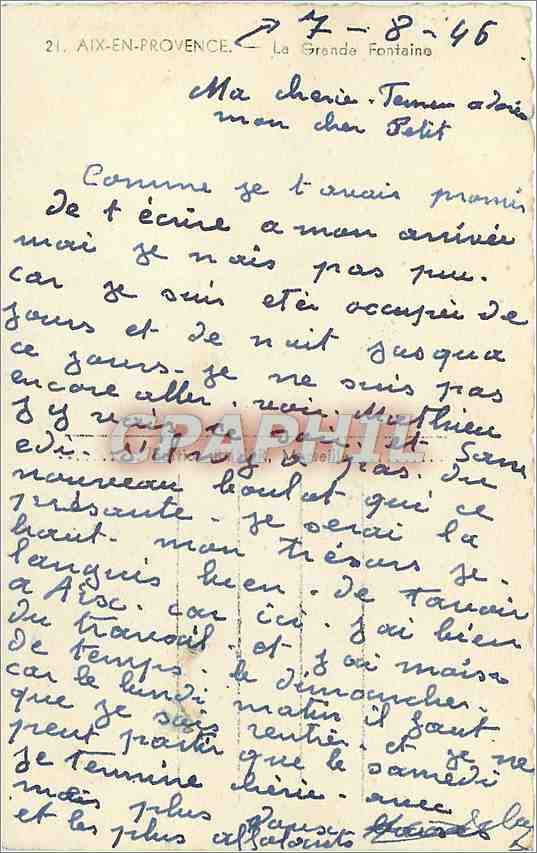 7-8-46
21. AIX-EN-PROVENCE. — La Grande Fontaine
Ma cherie. Femme adorée
mon cher Petit
Comme je t'avais promis
de t écrire a mon arrivée
mai je nais pas peu.
car je suis etéi occupée de
jours et de nuit jusqua
ce jours. je ne suis pas
encore aller. voir. Mathieu
j y vais ce soir. et Sam
edi. s'il ny a pas. du
Marseille
nouveau boulot qui ce
présante. je serai la
haut. mon trésors je.
languis bien. de tavoir
a Aix. car ici. j'ai bien
du travail. et j'ai mois
de temps. le dimancher.
car le lundi matin il faut
que je sois rentré. et je ne
peut partir que le samedi
je termine chérie. avec
mais plus doux
et les plus affolants
CPARAMA